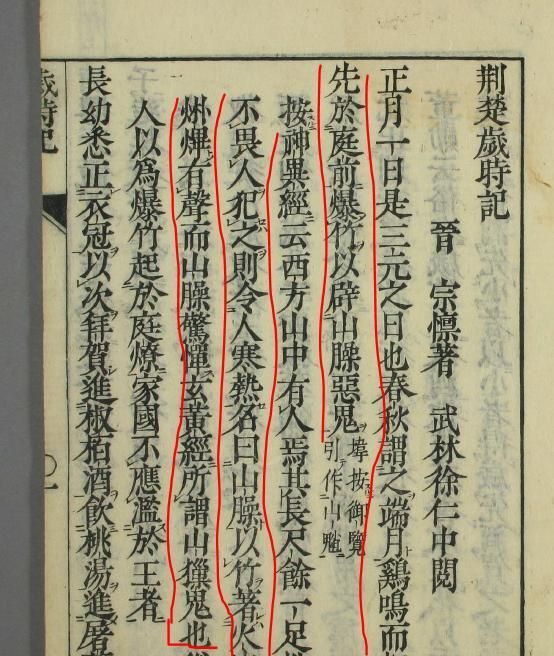 荆楚歲時記
晉 宗懍著 武林徐仁中閱
正月一日是三元之日也春秋謂之端月鷄鳴而
先於庭前爆竹以辟山臊惡鬼 㙔按御覽引作山魈
按神異經云西方山中有人焉其長尺餘一足
不畏人犯之則令人寒熱名曰山臊以竹著火
烞熚有聲而山臊驚憚玄黃經所謂山𤢖鬼也
人以為爆竹起於庭燎家國不應濫於王者
長幼悉正衣冠以次拜賀進椒栢酒飲桃湯進屠
歲時記
一